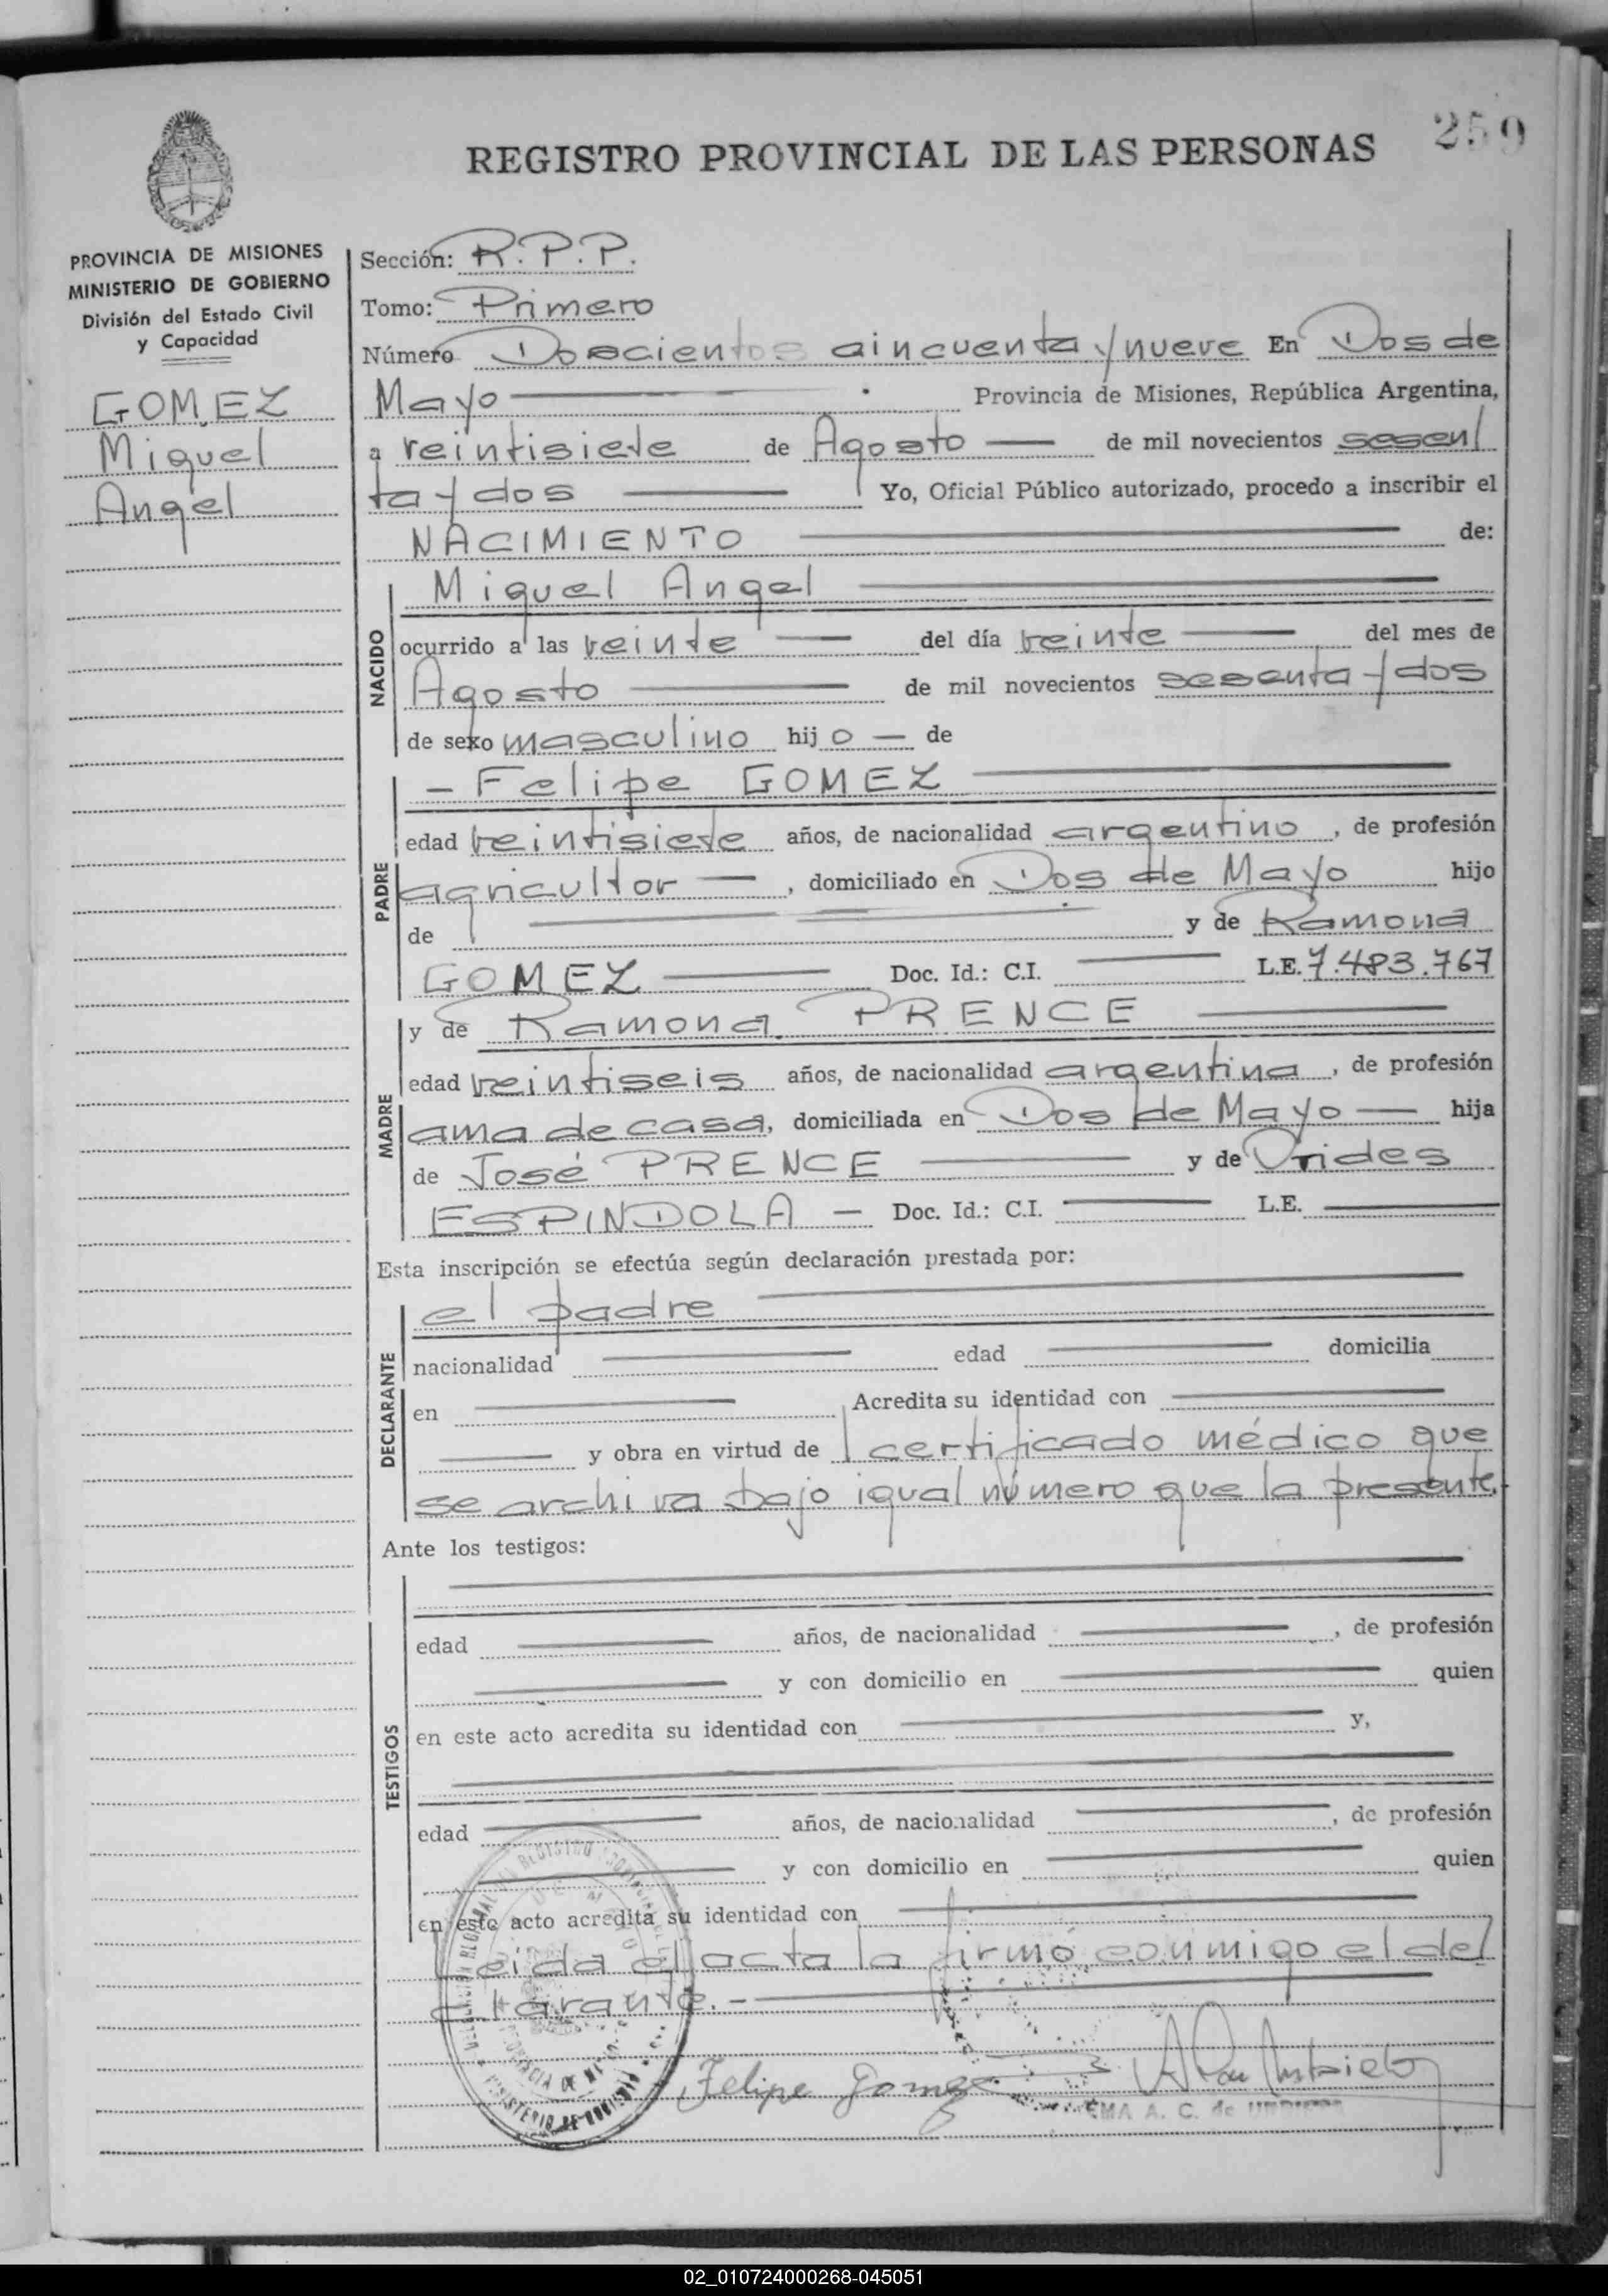 259
REGISTRO PROVINCIAL DE LAS PERSONAS
PROVINCIA DE MISIONES
MINISTERIO DE GOBIERNO
División del Estado Civil
y Capacidad
GOMEZ
Miguel
Angel
Sección: R.P.P.
Tomo: Primero
Número Doscientos cincuenta y nueve En Dos de
Mayo Provincia de Misiones, República Argentina,
a veintisiete de Agosto de mil novecientos sesen
ta y dos Yo, Oficial Público autorizado, procedo a inscribir el
NACIMIENTO de:
NACIDO
Miguel Angel
ocurrido a las veinte del día veinte del mes de
Agosto de mil novecientos sesenta y dos
de sexo masculino hijo de
PADRE
Felipe GOMEZ
edad veintisiete años, de nacionalidad argentino, de profesión
agricultor, domiciliado en Dos de Mayo hijo
de y de Ramona
GOMEZ Doc. Id.: C.I. L.E. 7.483.767
MADRE
y de Ramona PRENCE
edad veintiseis años, de nacionalidad argentina, de profesión
ama de casa, domiciliada en Dos de Mayo hija
de José PRENCE y de Orides
ESPINDOLA Doc. Id.: C.I. L.E.
Esta inscripción se efectúa según declaración prestada por:
DECLARANTE
el padre
nacionalidad edad domicilia
en Acredita su identidad con
y obra en virtud de certificado médico que
se archiva bajo igual número que la presente.
Ante los testigos:
TESTIGOS
edad años, de nacionalidad , de profesión
y con domicilio en quien
en este acto acredita su identidad con y,
edad años, de nacionalidad , de profesión
y con domicilio en quien
en este acto acredita su identidad con
Leida el acta la firmó conmigo el de
clarante.-
Felipe Gomez
EMA A. C. de
02_010724000268-045051